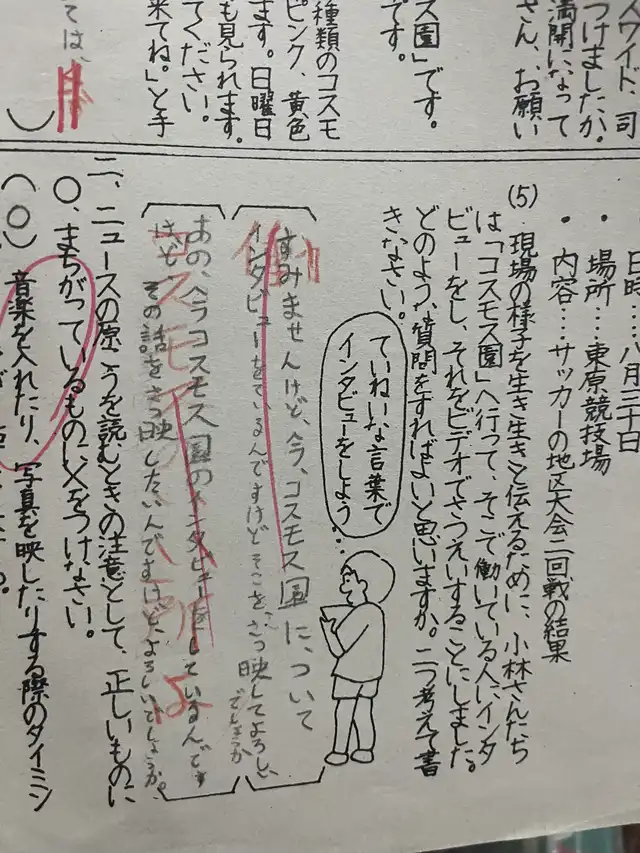 スワイド、司
つけましたか。
満開になって
さん、お願い
ス園」です。
です。
種類のコスモ
ピンク、黄色
ます。日曜日
も見られます。
てください。
来てね。」と手
ては、
日時…八月三十日
・場所…東原競技場
・内容…サッカーの地区大会二回戦の結果
(5) 現場の様子を生き生きと伝えるために、小林さんたち
は「コスモス園」へ行って、そこで働いている人にインタ
ビューをし、それをビデオでさつえいすることにしました。
どのような質問をすればよいと思いますか。二つ考えて書
きなさい。
ていねいな言葉で
インタビューをしよう
すみませんけど、今、コスモス園に、ついて
インタビューをているんですけどそこを、さつ映してよろしい
でしょうか
あの、今コスモス園のインタビューをしているんです
けど、その話をさつ映したいんですけど、よろしいでしょうか。
二、ニュースの原こうを読むときの注意として、正しいものに
〇、まちがっているものに×をつけなさい。
(〇) 音楽を入れたり、写真を映したりする際のタイミン